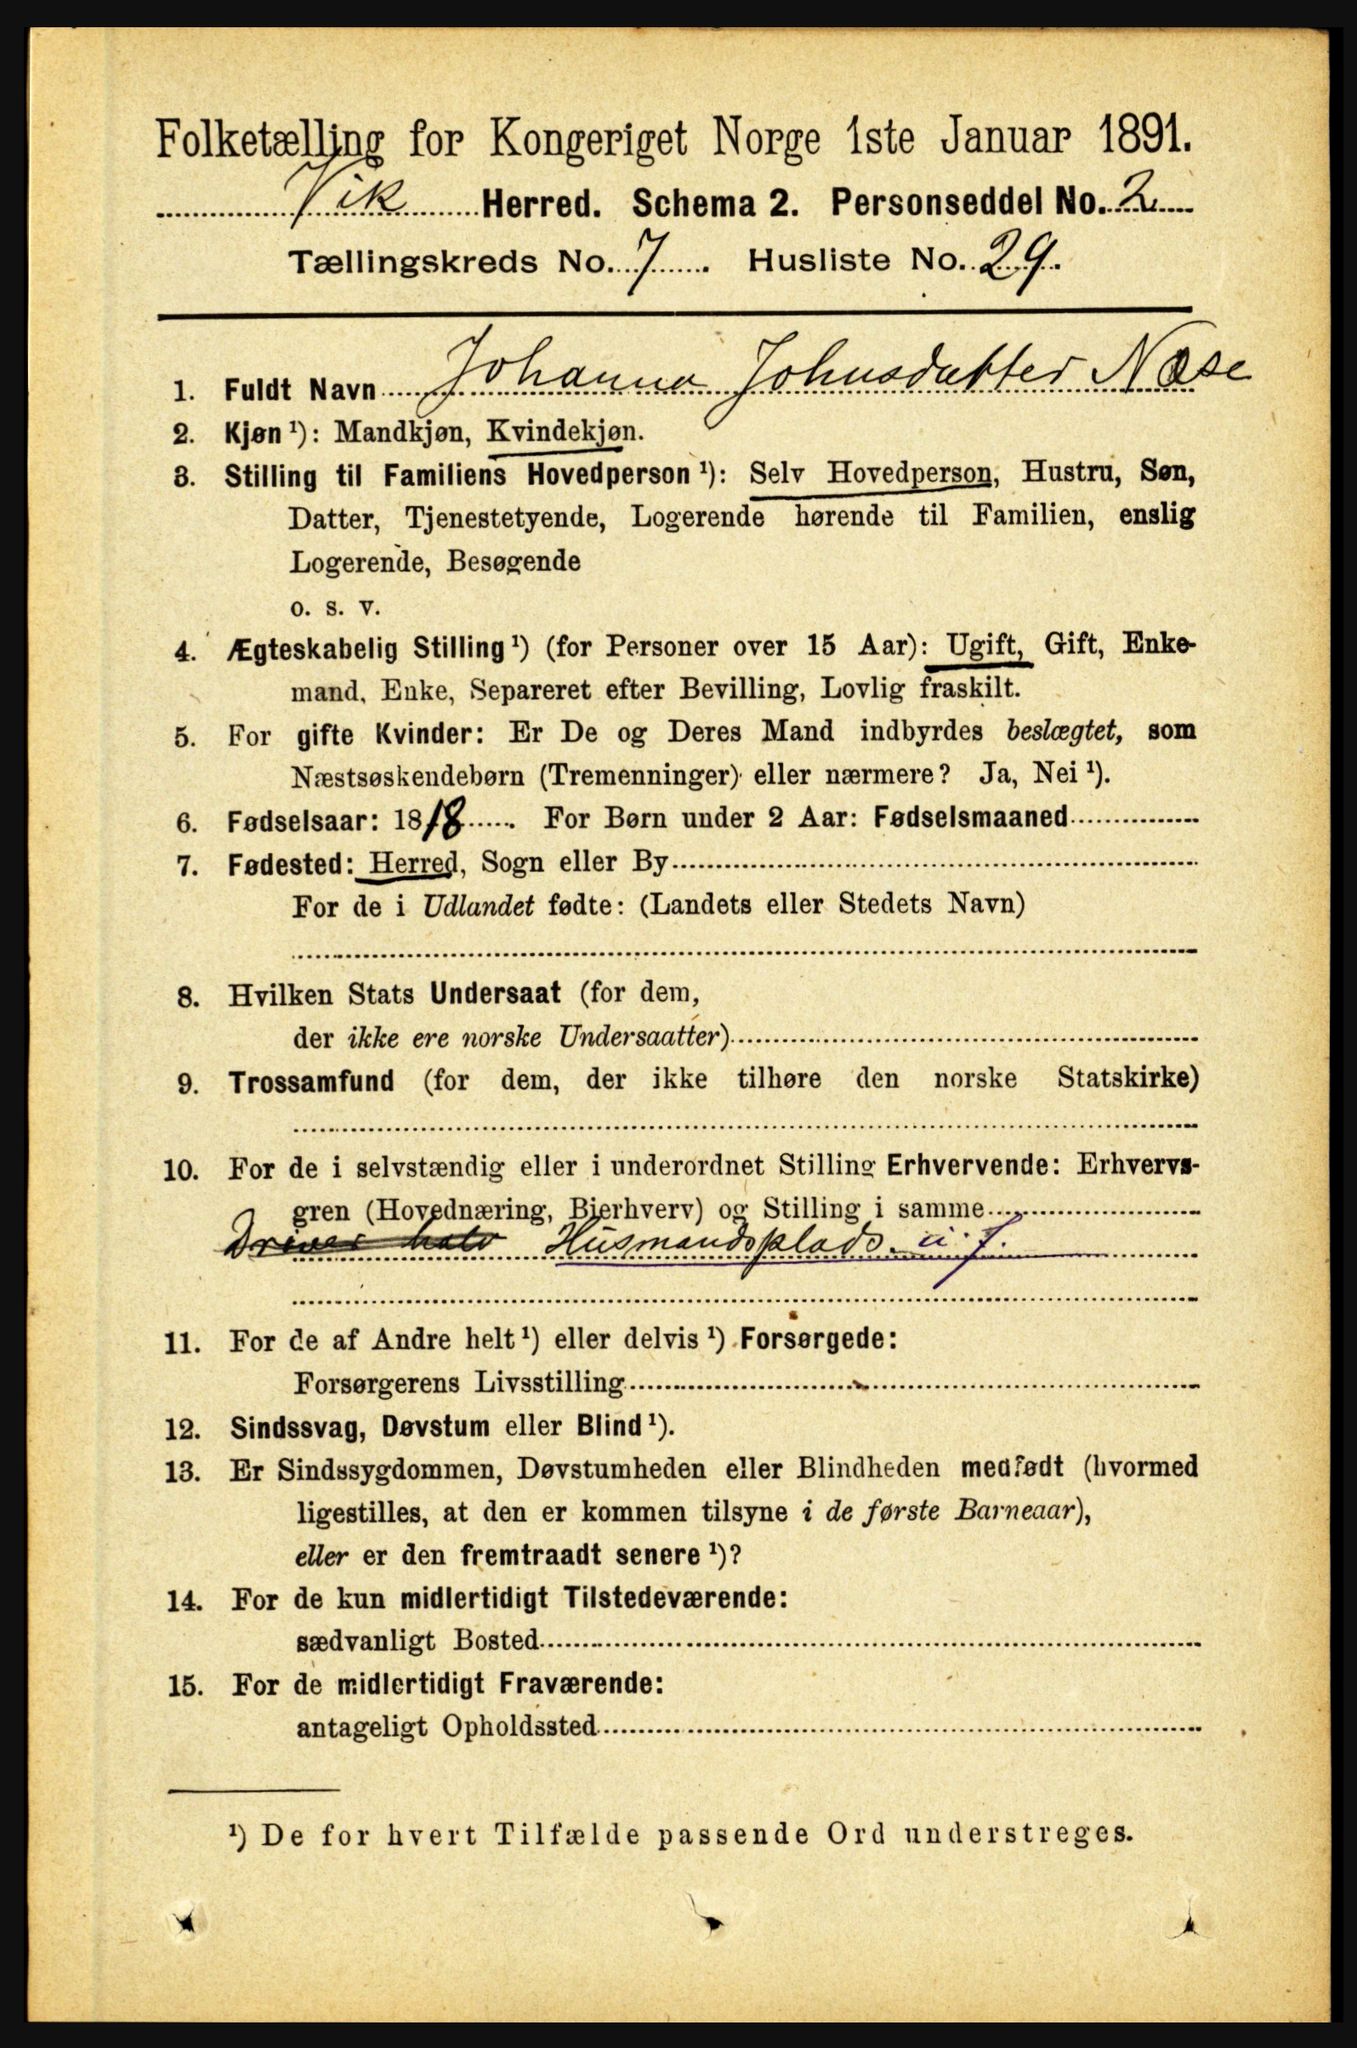 Folketælling for Kongeriget Norge 1ste Januar 1891.
Vik Herred. Schema 2. Personseddel No. 2
Tællingskreds No. 7. Husliste No. 29.
1. Fuldt Navn Johanna Johnsdatter Næse
2. Kjøn ¹): Mandkjøn, Kvindekjøn.
3. Stilling til Familiens Hovedperson ¹): Selv Hovedperson, Hustru, Søn,
Datter, Tjenestetyende, Logerende hørende til Familien, enslig
Logerende, Besøgende
o. s. v.
4. Ægteskabelig Stilling ¹) (for Personer over 15 Aar): Ugift, Gift, Enke-
mand, Enke, Separeret efter Bevilling, Lovlig fraskilt.
5. For gifte Kvinder: Er De og Deres Mand indbyrdes beslægtet, som
Næstsøskendebørn (Tremenninger) eller nærmere? Ja, Nei ¹).
6. Fødselsaar: 1818. For Børn under 2 Aar: Fødselsmaaned
7. Fødested: Herred, Sogn eller By
For de i Udlandet fødte: (Landets eller Stedets Navn)
8. Hvilken Stats Undersaat (for dem,
der ikke ere norske Undersaatter)
9. Trossamfund (for dem, der ikke tilhøre den norske Statskirke)
10. For de i selvstændig eller i underordnet Stilling Erhvervende: Erhvervs-
gren (Hovednæring, Bierhverv) og Stilling i samme
Driver halv Husmandsplads u. j.
11. For de af Andre helt ¹) eller delvis ¹) Forsørgede:
Forsørgerens Livsstilling
12. Sindssvag, Døvstum eller Blind ¹).
13. Er Sindssygdommen, Døvstumheden eller Blindheden medfødt (hvormed
ligestilles, at den er kommen tilsyne i de første Barneaar),
eller er den fremtraadt senere ¹)?
14. For de kun midlertidigt Tilstedeværende:
sædvanligt Bosted
15. For de midlertidigt Fraværende:
antageligt Opholdssted
¹) De for hvert Tilfælde passende Ord understreges.